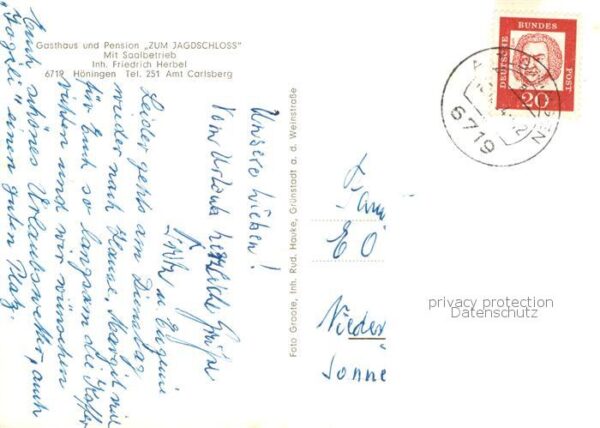 Gasthaus und Pension „ZUM JAGDSCHLOSS"
Mit Saalbetrieb
Inh. Friedrich Herbel
6719 Höningen Tel. 251 Amt Carlsberg
Unsere Lieben!
Vom Urlaub herzliche Grüße
Fritz u Eugenie
Leider gehts am Dienstag
wieder nach Hause, Margit will
für Euch so langsam die Koffer
richten und wir wünschen
Euch schönes Urlaubswetter, auch
„Jogeli" einen guten Platz.
Foto Groote, Inh. Rud. Hauke, Grünstadt a. d. Weinstraße
DEUTSCHE BUNDESPOST
20
6719
Fam
E O
Nieder
Sonne
privacy protection
Datenschutz